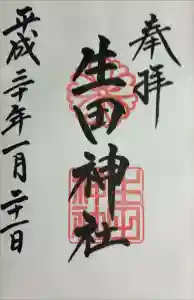 奉拝
生田神社
平成二十年一月二十一日